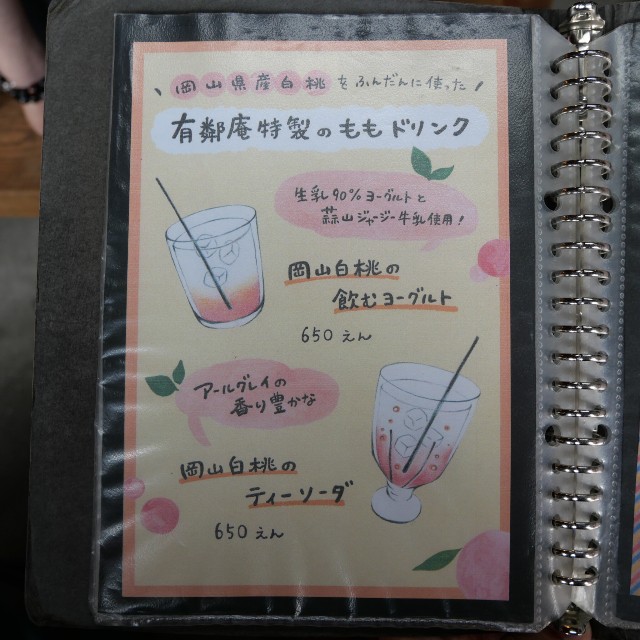 岡山県産白桃をふんだんに使った
有鄰庵特製のももドリンク
生乳90%ヨーグルトと
蒜山ジャージー牛乳使用!
岡山白桃の
飲むヨーグルト
650えん
アールグレイの
香り豊かな
岡山白桃の
ティーソーダ
650えん